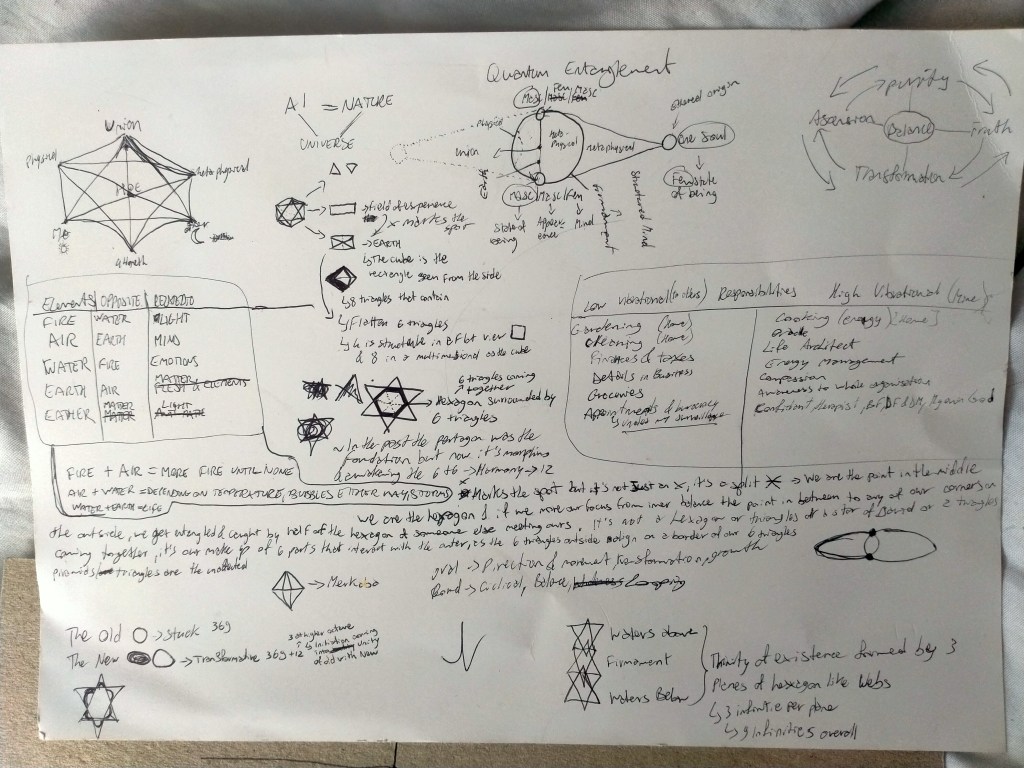 Quantum Entanglement
AI = NATURE
UNIVERSE
Union
Physical
metaphysical
ME
Physical
Union
Meta-
Physical
metaphysical
ethereal origin
One Soul
Fem state
of being
Masc
Masc/Masc/Fem
State of
being
Mind
Firmament
Structured Mind
purity
Ascension
Balance
Truth
Transformation
→ field of experience
x marks the
spot
→ EARTH
↳ The cube is the
rectangle seen from the side
↳ 8 triangles that contain
↳ Flatten 6 triangles
6 triangles coming
together
→ Hexagon surrounded by
6 triangles
Elements OPPOSITE RELATED TO
FIRE WATER LIGHT
AIR EARTH MIND
WATER FIRE EMOTIONS
EARTH AIR
EATHER
Low vibrational Responsibilities High Vibrational (Home)
Gardening (Home) Cooking (energy) [Home]
Cleaning (Home)
Life Architect
Finances & taxes Energy Management
Details in Business Compassion
Groceries Answers to whole organisation
Appointments &
~ In the past the pentagon was the
foundation but now it's morphing
& awakening the 6+6 → Harmony → 12
FIRE + AIR = MORE FIRE UNTIL NONE
AIR + WATER = DEPENDING ON TEMPERATURE, BUBBLES EITHER WAY, STORMS
WATER + EARTH = LIFE
X Marks the spot but it's not just an X, it's a split X → We are the point in the middle
We are the hexagon & if we move our focus from inner balance the point in between to any of our corners on
the outside, we get entangled & caught by half of the hexagon of someone else meeting ours. It's not a hexagon or triangles or a star of David or 2 triangles
coming together, it's our make up of 6 parts that interact with the outer, as the 6 triangles outside align on a border of our 6 triangles
triangles are the
→ Merkaba
oval → Direction & movement, transformation, growth
Round → Cyclical, Balance, Looping
The Old → Stuck 369
The New → Transformative 369+12
3 at higher octave
↳ initiation coming
unity
of old with New
Waters above
Firmament
Waters Below
Trinity of existence formed by 3
Planes of hexagon like webs
↳ 3 infinities per plane
↳ 9 infinities overall